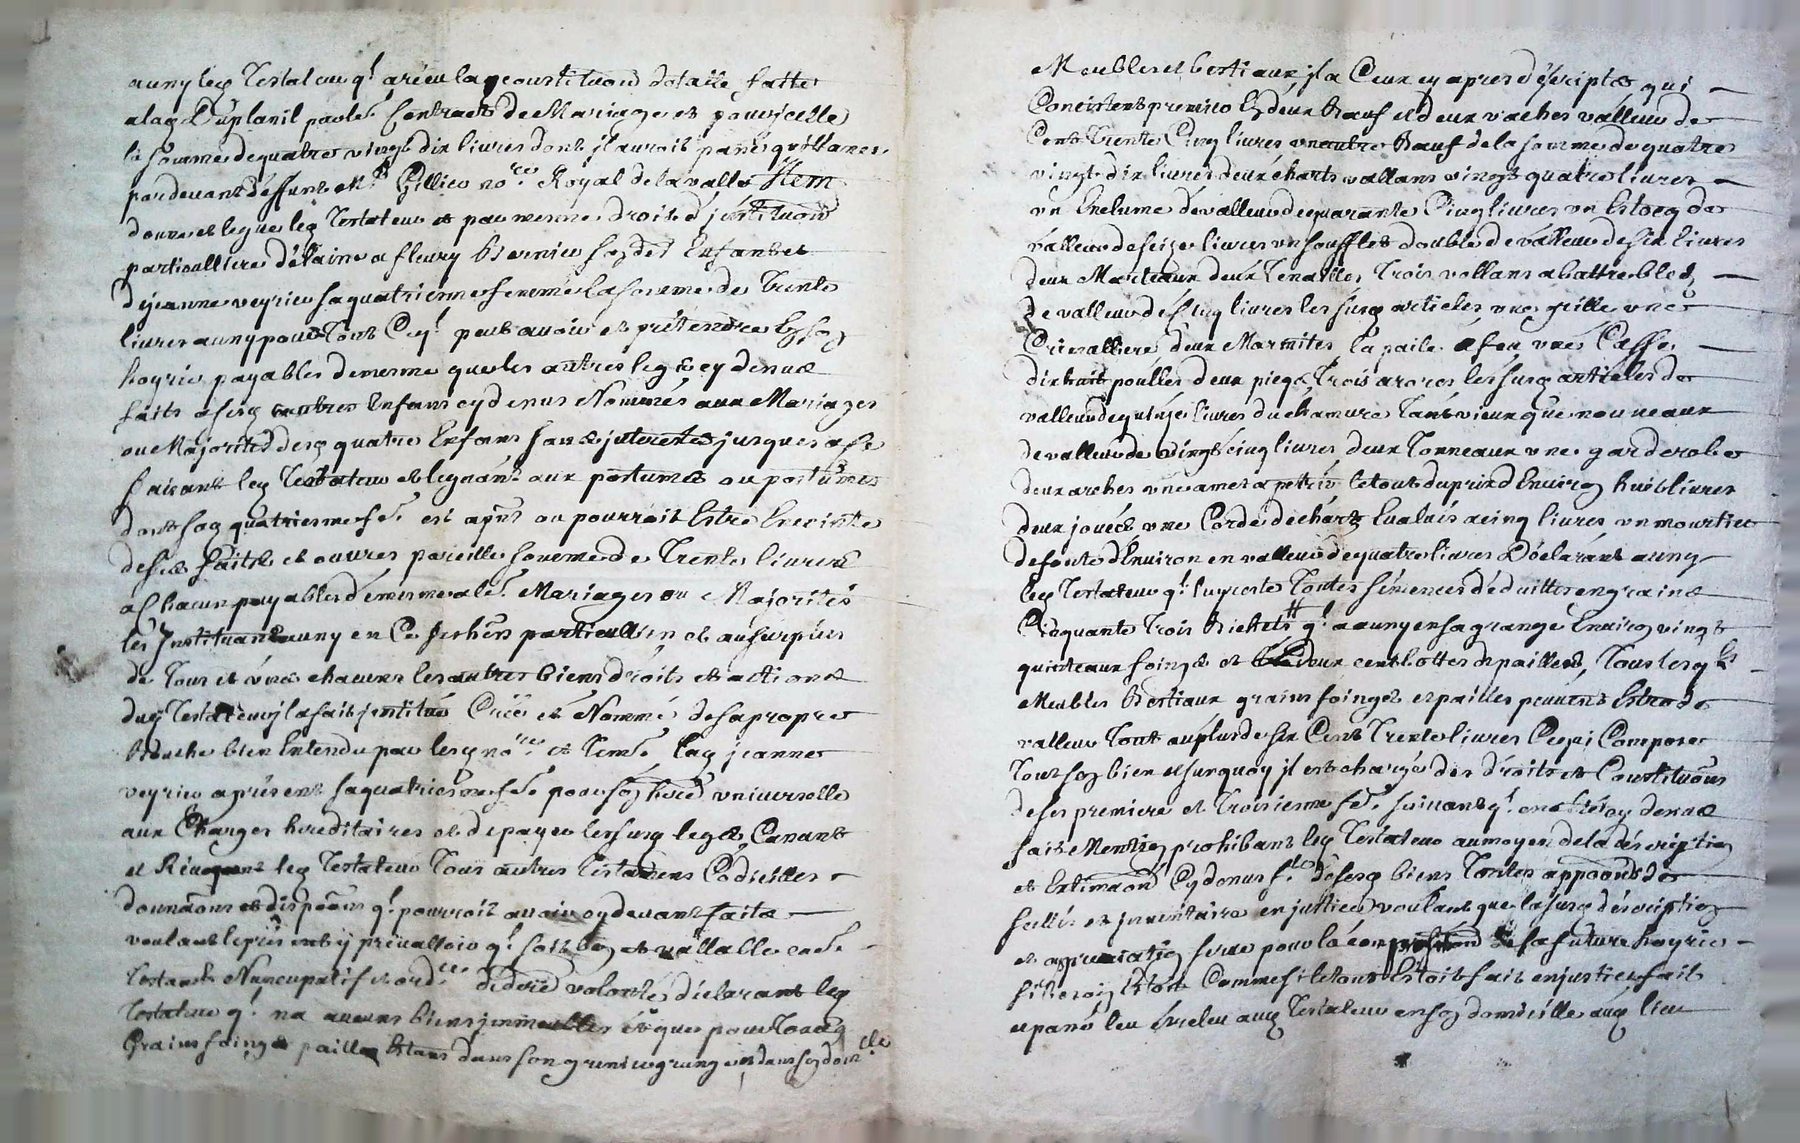 auny leg Testateur q.^t a reçeu la q constituaon dotalle faitte
a lag Duplanil par le.^d Contract de Mariage et pour jcelle
la somme de quatre vingt dix livres dont jl auroit passé quittance
par devant deffunt M.^e Gillieu no.^re Royal de la valla Item
donne et legue leg Testateur et par mesme droit d'jnstituaon
particulliere délaine a fleury Bernieu so de.^t Enfant et
de jeanne veyrieu sa quatriesme femme la somme de Trente
livres auny pour Tout Ceq.^l peut avoir et prétendre En so
hoyrie payables de mesme que les autres leg cy dessus
faits a ses autres Enfans cy dessus Nommés aux Mariages
ou Majorité des quatre Enfans sans jnterests jusques a ce
faisant leg Testateur et leguant aux postumes ou postumes
dont sa quatriesme fe.^e est a pnt ou pourroit Estre Enceinte
de ses faits et œuvres pareille somme de Trente livres
a Chacun payables de mesme a le.^d Mariages ou Majorités
les Instituant auny en Ce ses hers particulliers et au surplus
de Tous et uns chacuns les autres biens droits et actions
dug Testateur jl a fait jnstitué Créé et Nommé de sa propre
Bouche bien Entendu par lesq no.^re et Temo.^s lag jeanne
veyrieu a présent sa quatriesme fe.^e pour so hered universelle
aux Charges hereditaires et de payer les susq legs Cassant
et Révoquant leg Testateur Tous autres Testamens Codicilles
donnaons et dispoons q.^l pourroit avoir cy devant faits
voulant le pnt en ty prévalloir q.^l soit bon et vallable en de.^t
Testant Nuncupatif et ord.^re de derre volonté déclarant leg
Testateur q.^l na aucuns biens jmmeubles et que pour Tous
Grains foings pailles Estans dans son grenier grange et dans so dom.^lle
Meubles et bestiaux jl a Ceux cy apres déscripts qui
Concistent premiero En deux Bœuf et deux vaches valleur de
Cent Trente Cinq livres un autre Bœuf de la somme de quatre
vingt dix livres deux charts vallans vingt quatre livres
un Enclume de valleur de quarante Cinq livres un Estocq de
valleur de seize livres un soufflet double de valleur de six livres
deux Marteaux deux Tenailles Trois vollans a battre bled
de valleur de Cinq livres les susq articles une grille une
Crémalliere deux Marmites la paile a feu une Casse
dix huit poulles deux pieqs Trois arores les susq articles de
valleur de quinze livres du chanvre Tant vieux que nouveaux
de valleur de vingt Cinq livres deux Tonneaux une garderobe
deux arches une amet a petrir le tout du prix d'Environ huit livres
deux jouées une Corde de charts Evalués a cinq livres un mourtier
de fonte d'Environ en valleur de quatre livres Déclarant auny
leg Testateur q.^l luy reste Toutes sémences déduittes en grains
Cinquante Trois Bichets # q.^l a auny en sa grange Environ vingt
quinteaux foings et deux cent bottes de pailles, Tous lesq.^ls
Meubles Bestiaux grains foinges et pailles peuvent Estre de
valleur Tout au plus de six Cent Trente livres Ce qui Compose
Tout so bien et sur quoy jl est chargé des droits et Constituaons
de ses premiere et troisiesme fe.^e suivant q.^l en a été cy dessus
fait Mention prohibant leg Testateur au moyen de la description
et Estimaon Cy dessus f.^te de ses biens Toutes appoons de
scellés et jnventaire en justice voulant que la susq déscription
et appreciation serve pour la composition de sa future hoyrie
si besoin Estoit Comme si le tout Estoit fait en justice fait
et passé leu éveleu auq Testateur en so domicille auq lieu